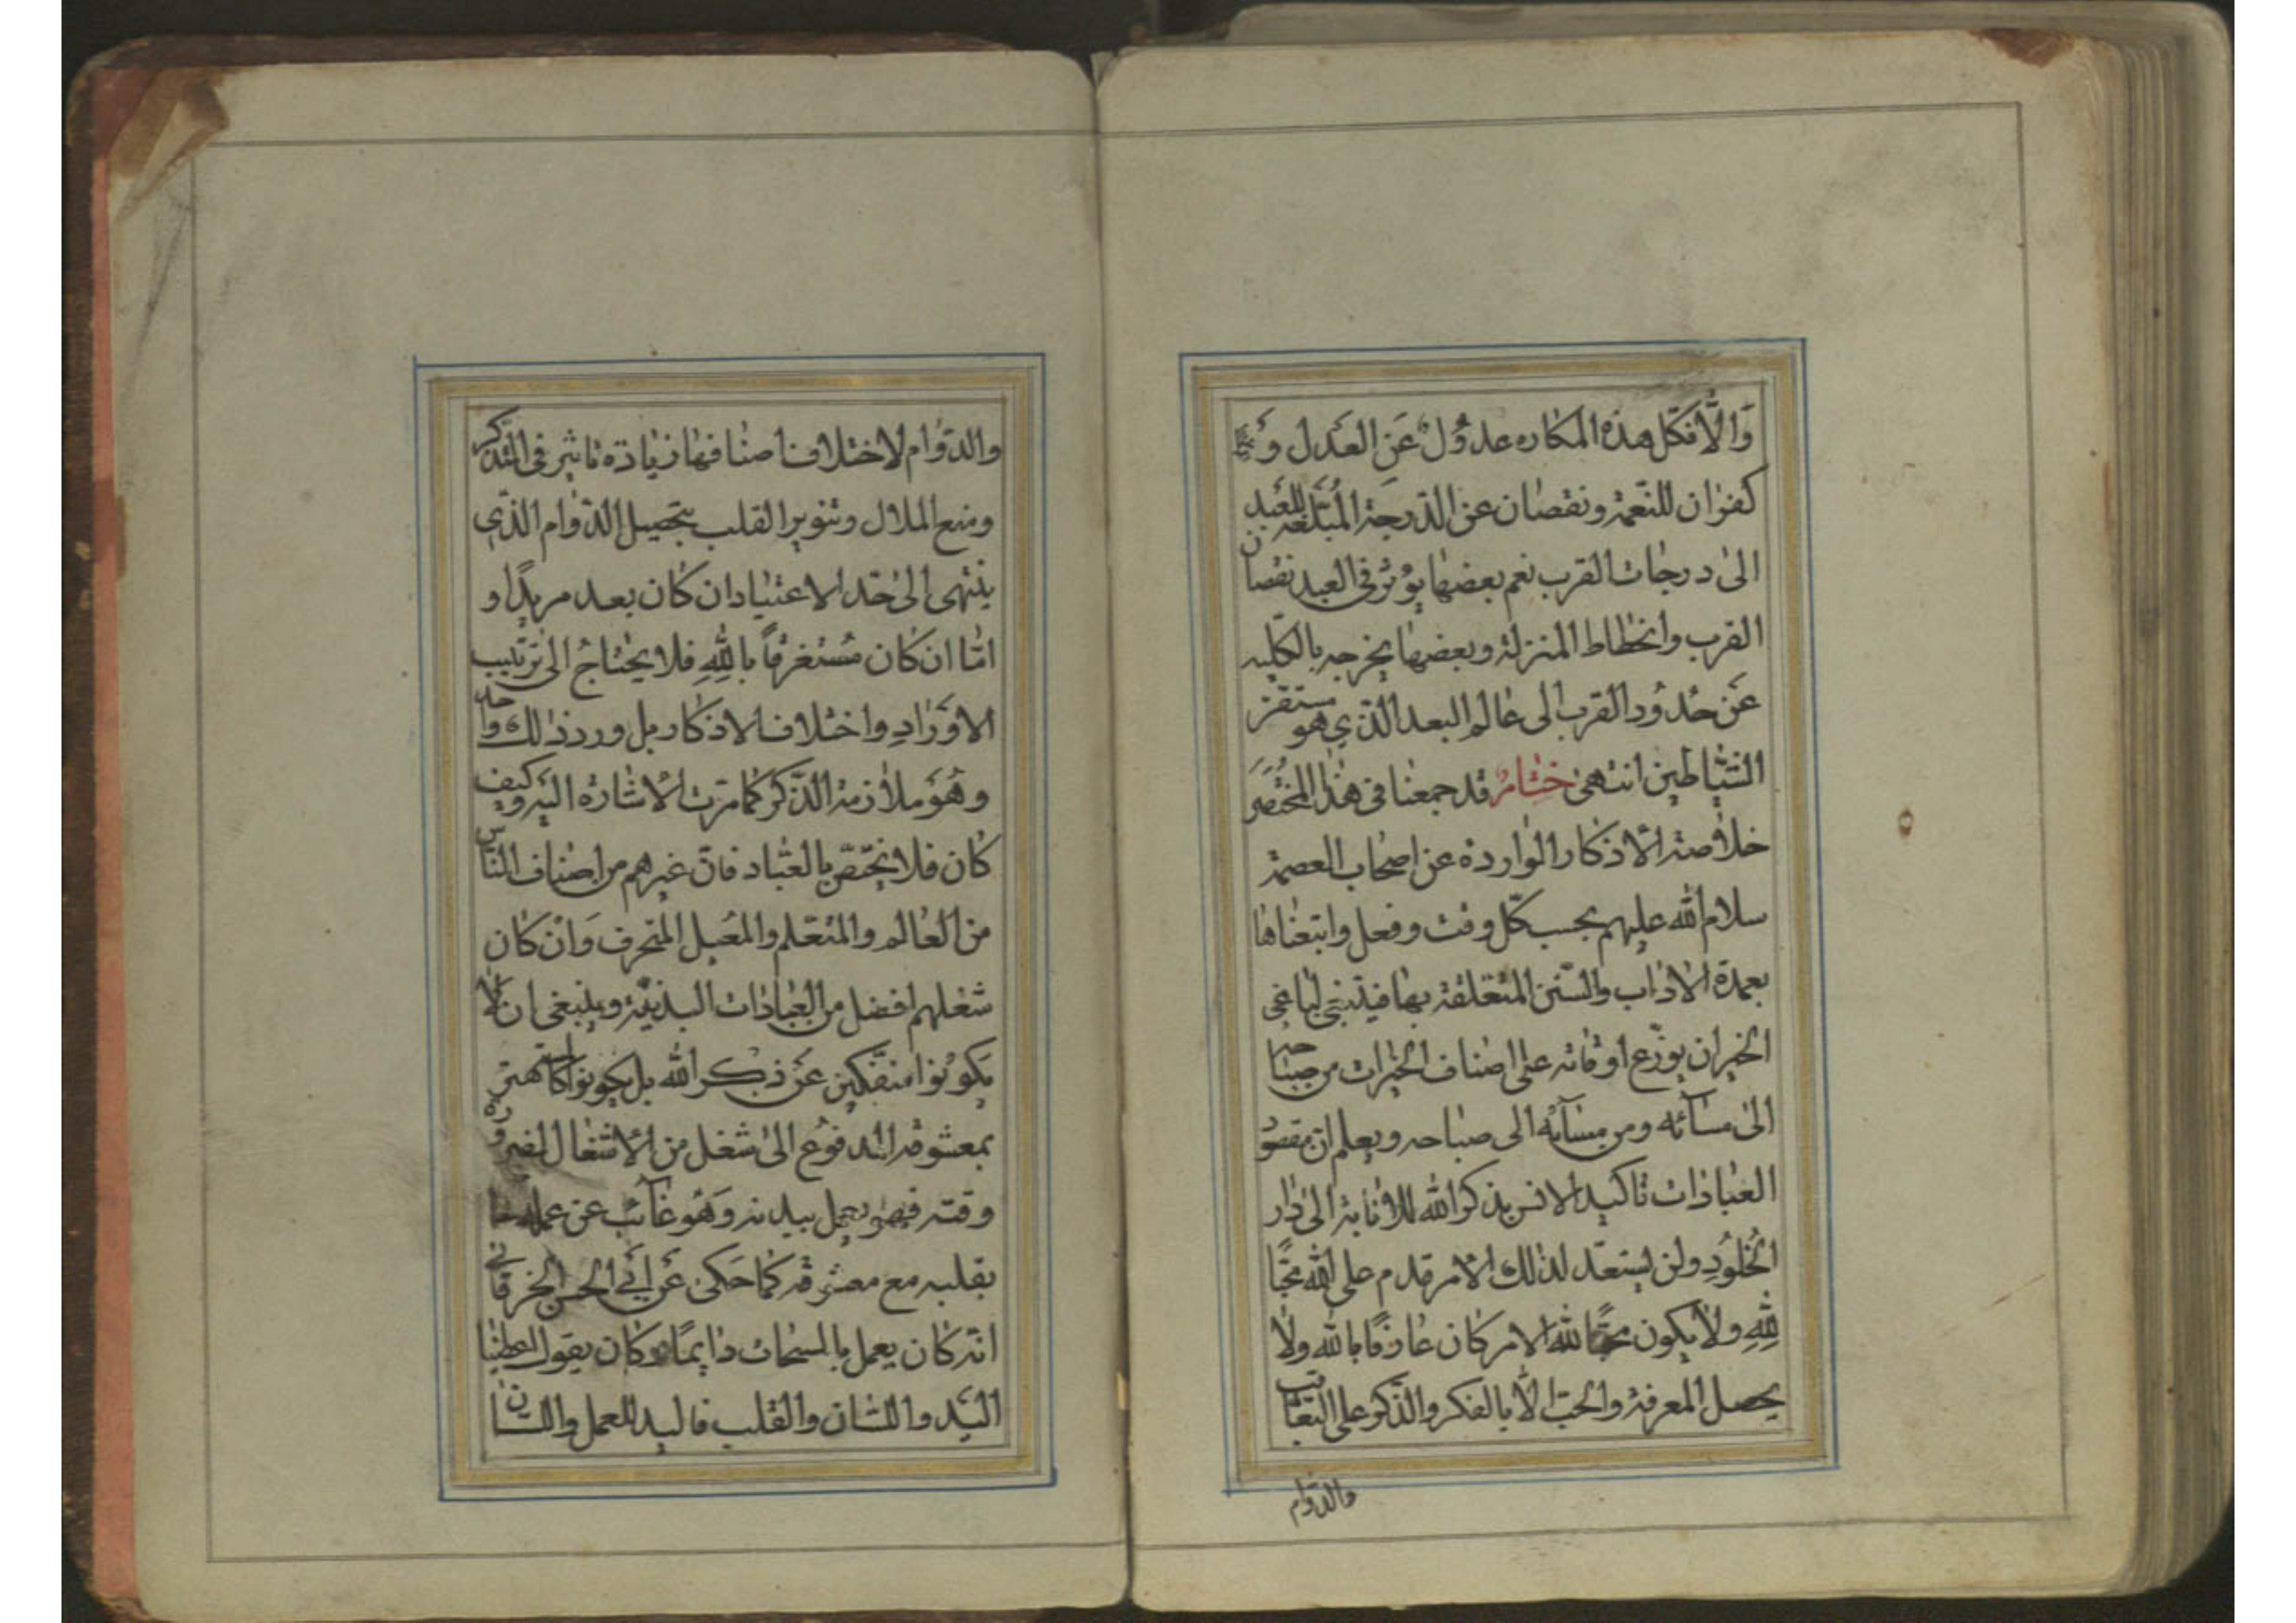 وَالّا فكلّ هذه المكاره عدوُل عَنِ العَدل وَ
كفران للنّعمة ونقصان عن الدّرجة المُبَلّغة للعَبد
الى درجات القرب نعم بعضها يؤثر فى العبد نقصان
القرب وانحطاط المنزلة وبعضها يخرجه بالكليه
عَن حُدوُد القرب الى عالم البعد الذّي هو مستقرّ
الشّياطين انتهى خِتامٌ قد جمعنا فى هذا المُختَصَر
خلاصة الاذكار الواردة عن اصحاب العصمة
سلام الله عليهم بحسب كلّ وقت وفعل واتبعناها
بعمدة الاداب والسّنن المتعلقة بها فينبغى لباغى
الخير ان يوزّع اوقاته على اصناف الخيرات من صباحه
الى مسآئه ومن مسآئه الى صباحه ويعلم ان مقصود
العبادات تاكيد الانس بذكر الله للانابة الى دار
الخلُودِ ولن يستعدّ لذلك الا من قدم على الله محبًّا
لِلّهِ ولا يكون محبًّا لله الا من كان عارفًا بالله ولا
يحصل المعرفة والحبّ الّا بالفكر والذّكر على التعاقب
والدّوام
والدّوام لاختلاف اصنافها زيادة تاثير فى التذكّر
ومنع الملال وتنوير القلب بتحصيل الدّوام الذّي
ينتهى الى حدّ الاعتياد ان كان بعد مريدًا و
امّا ان كان مُستغرقاً بِاللهِ فلا يحتاجُ الى ترتيب
الاوَرادِ واختلاف الاذكار بل ورد ذلك واحد
وهُوَ ملازمة الذّكر كما مرّت الاشارة اليه وكيف
كان فلا يختصّ بالعبّاد فانّ غيرهم من اصناف النّاس
من العالم والمتعلم والمعيل المتحرف وَان كان
شغلهم افضل من العبادات البدنيّة وينبغى ان لا
يكونوا منفكين عَن ذكر الله بل يكونوا كالمستهتر
بمعشوقه المدفوُع الى شغل من الاشغال لضرورة
وقته فهو يعمل ببدنه وَهُو غآئب عن عمله
بقلبه مع معشوقه كما حَكى عَن اَبى الحسن الخرقانى
انّه كان يعمل بالمسحات دايمًا وكان يقول اعطينا
اليَد واللسان والقلب فاليد للعمل واللسان